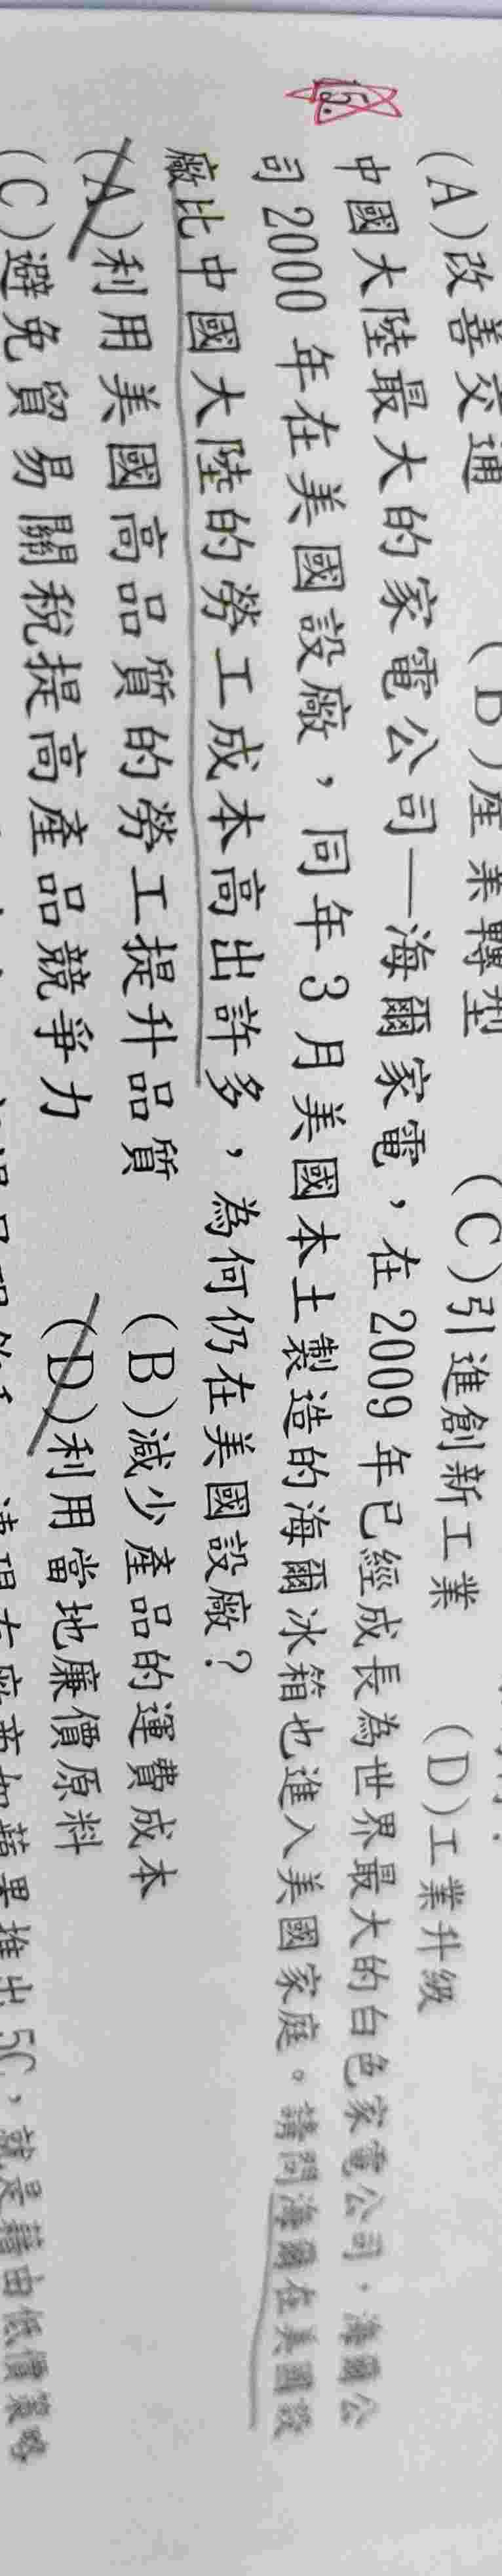 (A)改善交通 (B)產業轉型 (C)引進創新工業 (D)工業升級
15. 中國大陸最大的家電公司—海爾家電,在2009年已經成長為世界最大的白色家電公司,海爾公
司2000年在美國設廠,同年3月美國本土製造的海爾冰箱也進入美國家庭。請問海爾在美國設
廠比中國大陸的勞工成本高出許多,為何仍在美國設廠?
(A)利用美國高品質的勞工提升品質 (B)減少產品的運費成本
(C)避免貿易關稅提高產品競爭力 (D)利用當地廉價原料
蘋果推出5C,就是藉由低價策略